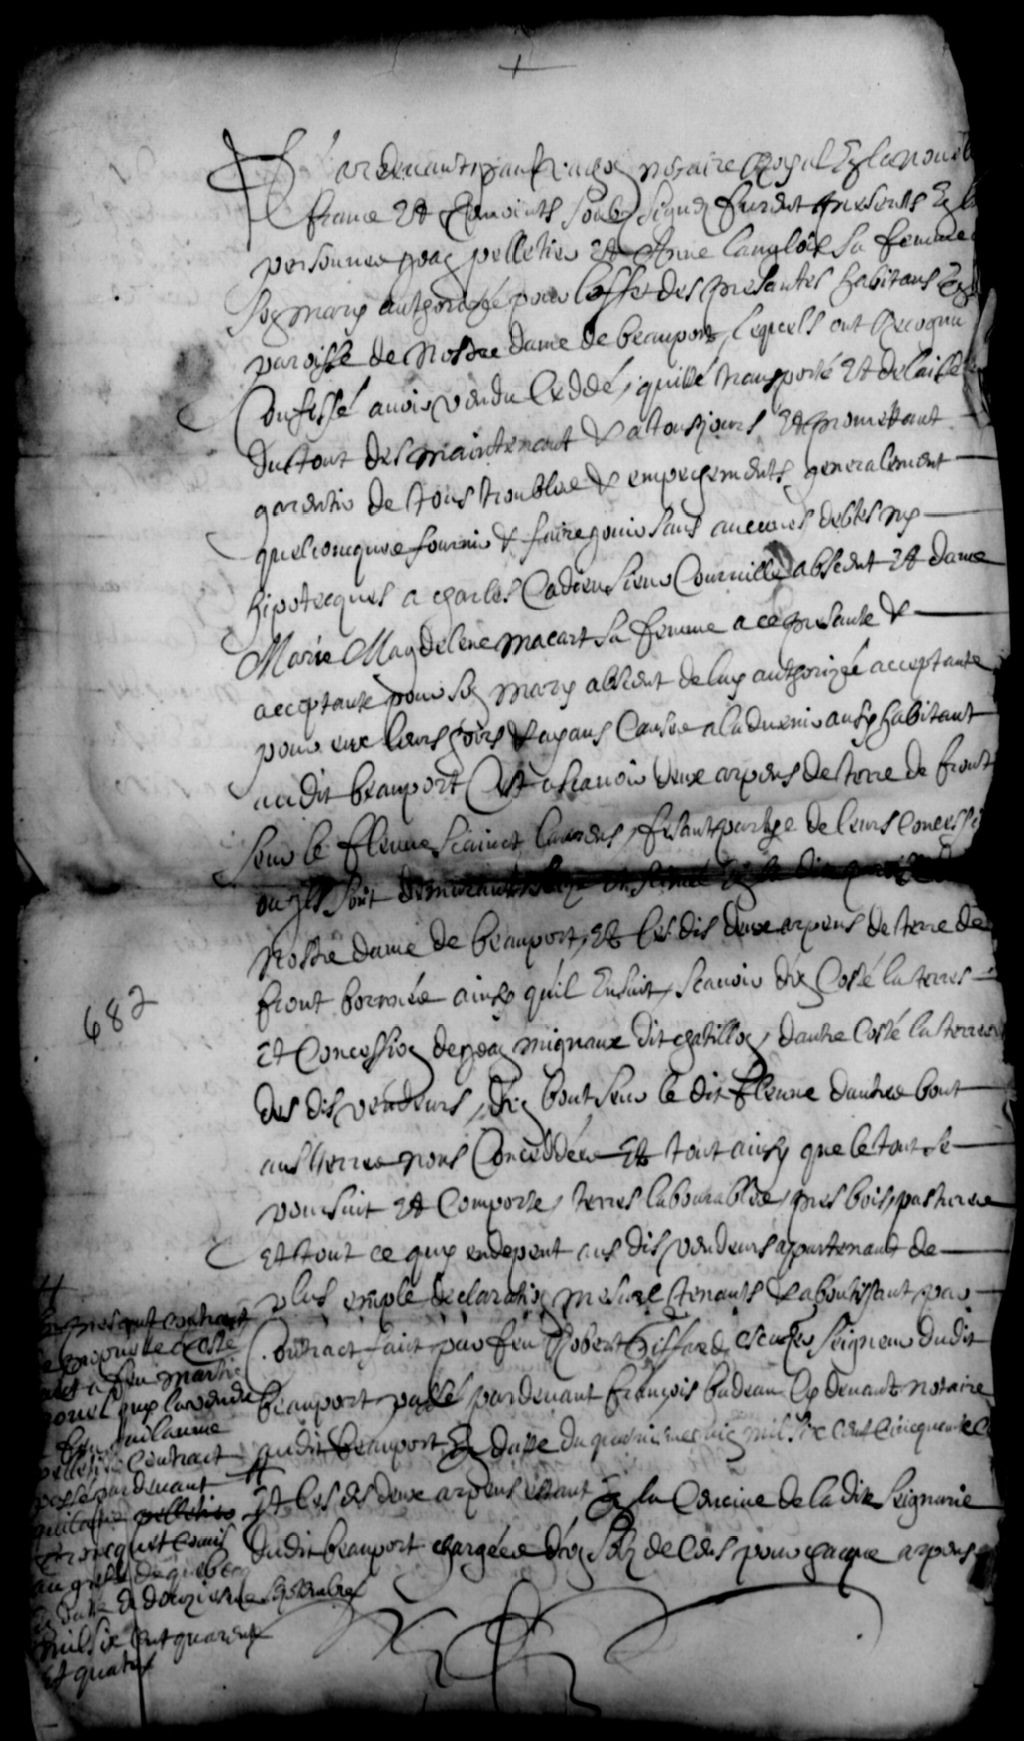 Pardevant paul vachon notaire Royal En la nouvelle
france Et temoints soubz signez furent presents En leurs
personnes jean pelletier Et Anne langlois sa femme
son mary authorizée pour leffet des presantes habitans En la
paroisse de Nostre dame de beauport, lequels ont Recognu
Confessé avoir vendu Ceddé, quitté transporté Et delaissé
du tout des maintenant & a tousjours Et promettant
garentir de tous troubles & empechements generalement
quelconques fournir & faire jouir sans aucunes debtes ny
hipotecques a charles Cadieu sieur Courville absent Et dame
Marie Magdelene macart sa femme a ce presante &
acceptante pour son mary absent de luy authorizée acceptante
pour eux leurs hoirs & ayans Cause a ladvenir ausy habitant
audit beauport Cest ascavoir deux arpens de terre de front
seur le fleuve sainct laurens, fesant partye de leurs Concession
ou ils sont demeurant
Nostre dame de beauport, Et les dis deux arpens de terre de
front bornées ainsy quil Ensuit, scavoir d'un Costé la terres
Et Concession de jean mignaux dit chatillon, dautre Costé la terres
des dis vendeurs, d'un bout seur le dit fleuve dautre bout
aus terres nons Conceddées Et tout ainsy que le tout se
poursuit Et Comporte, terres labourables, pres bois, pastures
Et tout ce quy en depent aus dis vendeurs appartenant de
plus emple declaration mesure tenants & aboutissant par
Contract fait par feu Robert Giffard escuyer seigneur dudit
beauport passé pardevant françois badeau Cy devant notaire
audit beauport En datte du mil six cent Cinquante
Et les dis deux arpens estant En la Censive de la dite seignurie
dudit beauport chargées d'un solz de Cens pour chacque arpens
682
presant contract
feu martin
prouvost
feu Guilaume
pelletier Contract
passé pardevant
pelletier
tronquet Comis
au greffe de quebec
En datte du douziesme septembre
mil six cent quarent
Et quatre